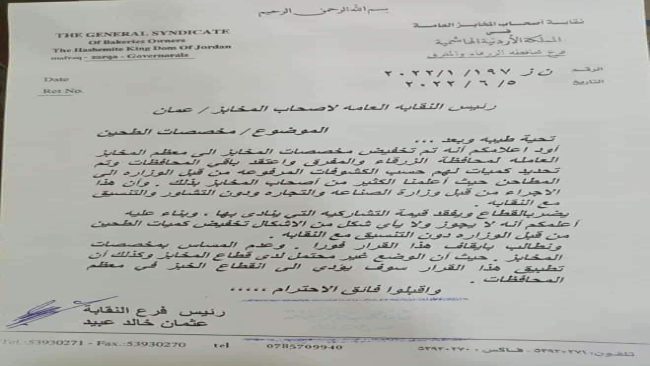 بسم الله الرحمن الرحيم
THE GENERAL SYNDICATE
Of Bakeries Owners
The Hashemite King Dom Of Jordan
mafraq - zarqa - Governorals
نقابة أصحاب المخابز العامة
في
المملكة الأردنية الهاشمية
فرع محافظة الزرقاء والمفرق
Date
Ref No.
الرقم ن ز ٢٠٢٢/١/١٩٧
التاريخ ٢٠٢٢/٦/٥
رئيس النقابه العامه لاصحاب المخابز / عمان
الموضوع / مخصصات الطحين
تحية طيبه وبعد ...
أود اعلامكم أنه تم تخفيض مخصصات المخابز الى معظم المخابز
العامله لمحافظة الزرقاء والمفرق واعتقد باقي المحافظات وتم
تحديد كميات لهم حسب الكشوفات المرفوعه من قبل الوزاره الى
المطاحن حيث أعلمنا الكثير من أصحاب المخابز بذلك . وان هذا
الاجراء من قبل وزارة الصناعه والتجاره ودون التشاور والتنسيق
مع النقابه .
يضر بالقطاع ويفقد قيمة التشاركيه التي ينادى بها ، وبناء عليه
أعلمكم أنه لا يجوز ولا بأي شكل من الأشكال تخفيض كميات الطحين
من قبل الوزاره دون التنسيق مع النقابه .
ونطالب بايقاف هذا القرار فورا . وعدم المساس بمخصصات
المخابز . حيث أن الوضع غير محتمل لدى قطاع المخابز وكذلك أن
تطبيق هذا القرار سوف يؤدي الى انقطاع الخبز في معظم
المحافظات .
واقبلوا فائق الاحترام .....
رئيس فرع النقابة
عثمان خالد عبيد
Tel.:53930271 - Fax.:53930270 tel 0785709940 تلفون: ٥٣٩٣٠٢٧١ - فاكس ٥٣٩٣٠٢٧٠